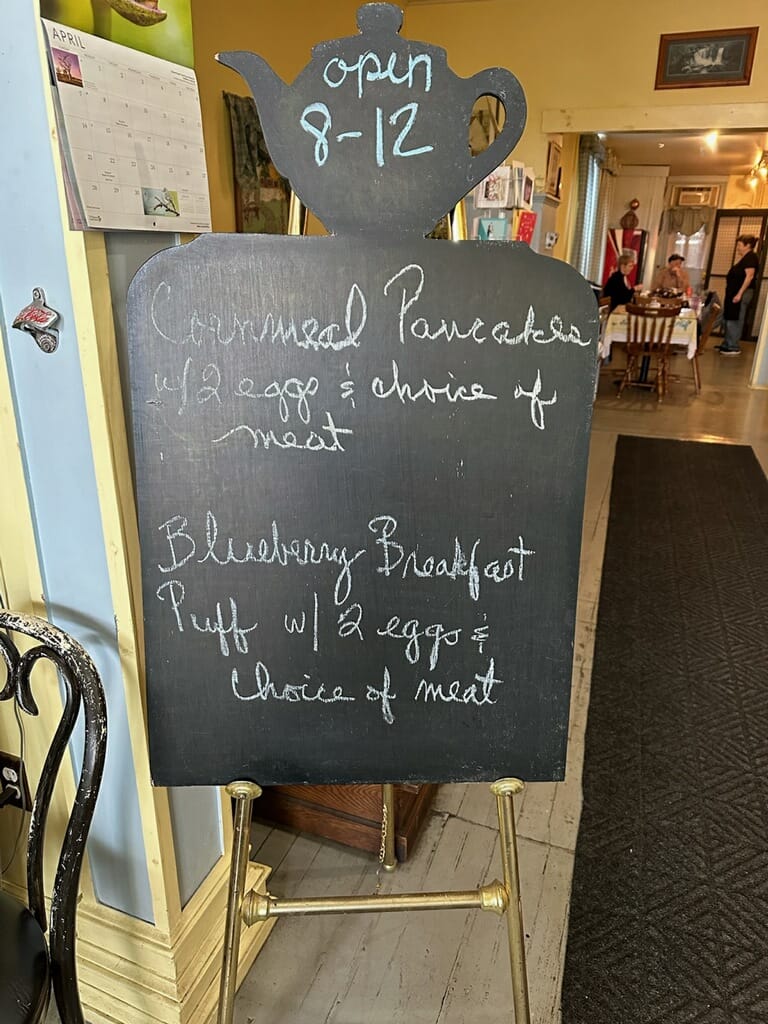 APRIL
open
8-12
Cornmeal Pancakes
w/2 eggs & choice of
meat
Blueberry Breakfast
Puff w/ 2 eggs &
choice of meat